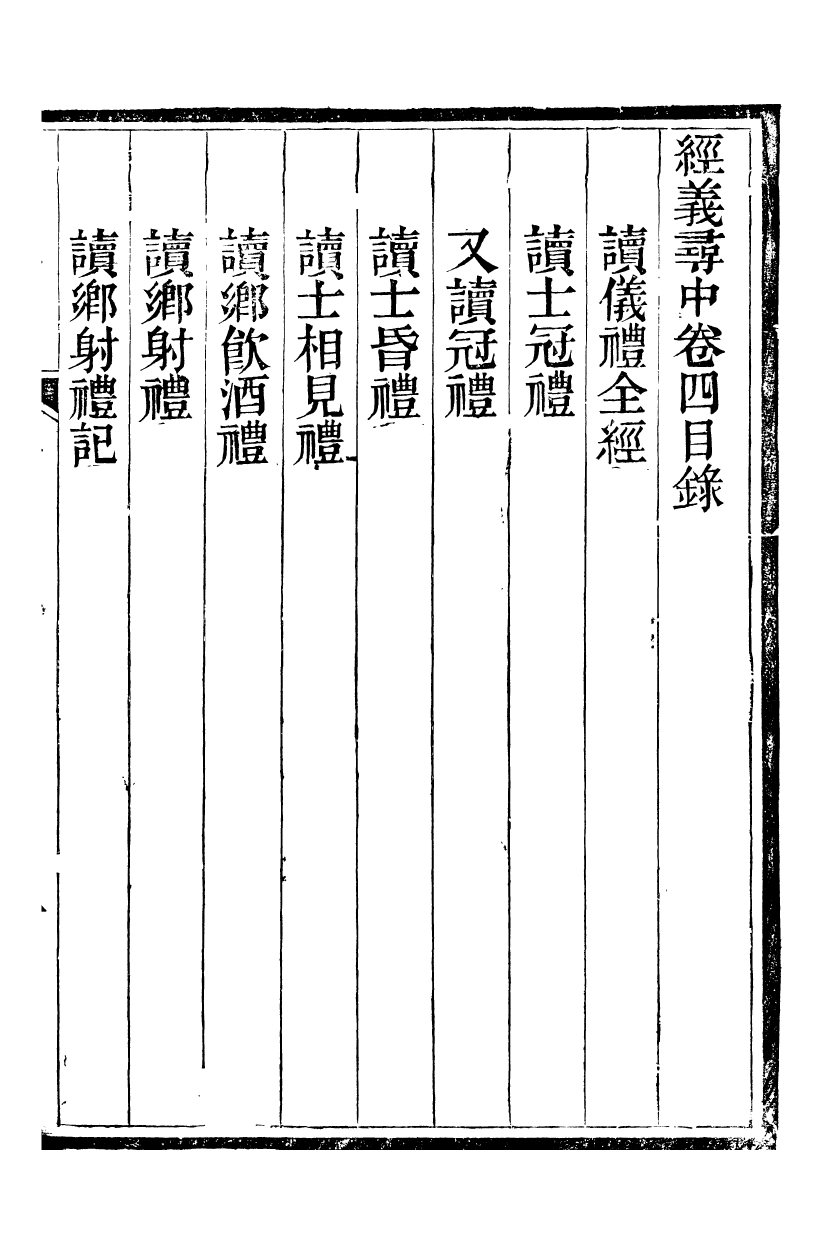 經義尋中卷四目錄
讀儀禮全經
讀士冠禮
又讀冠禮
讀士昏禮
讀士相見禮
讀鄉飲酒禮
讀鄉射禮
讀鄉射禮記